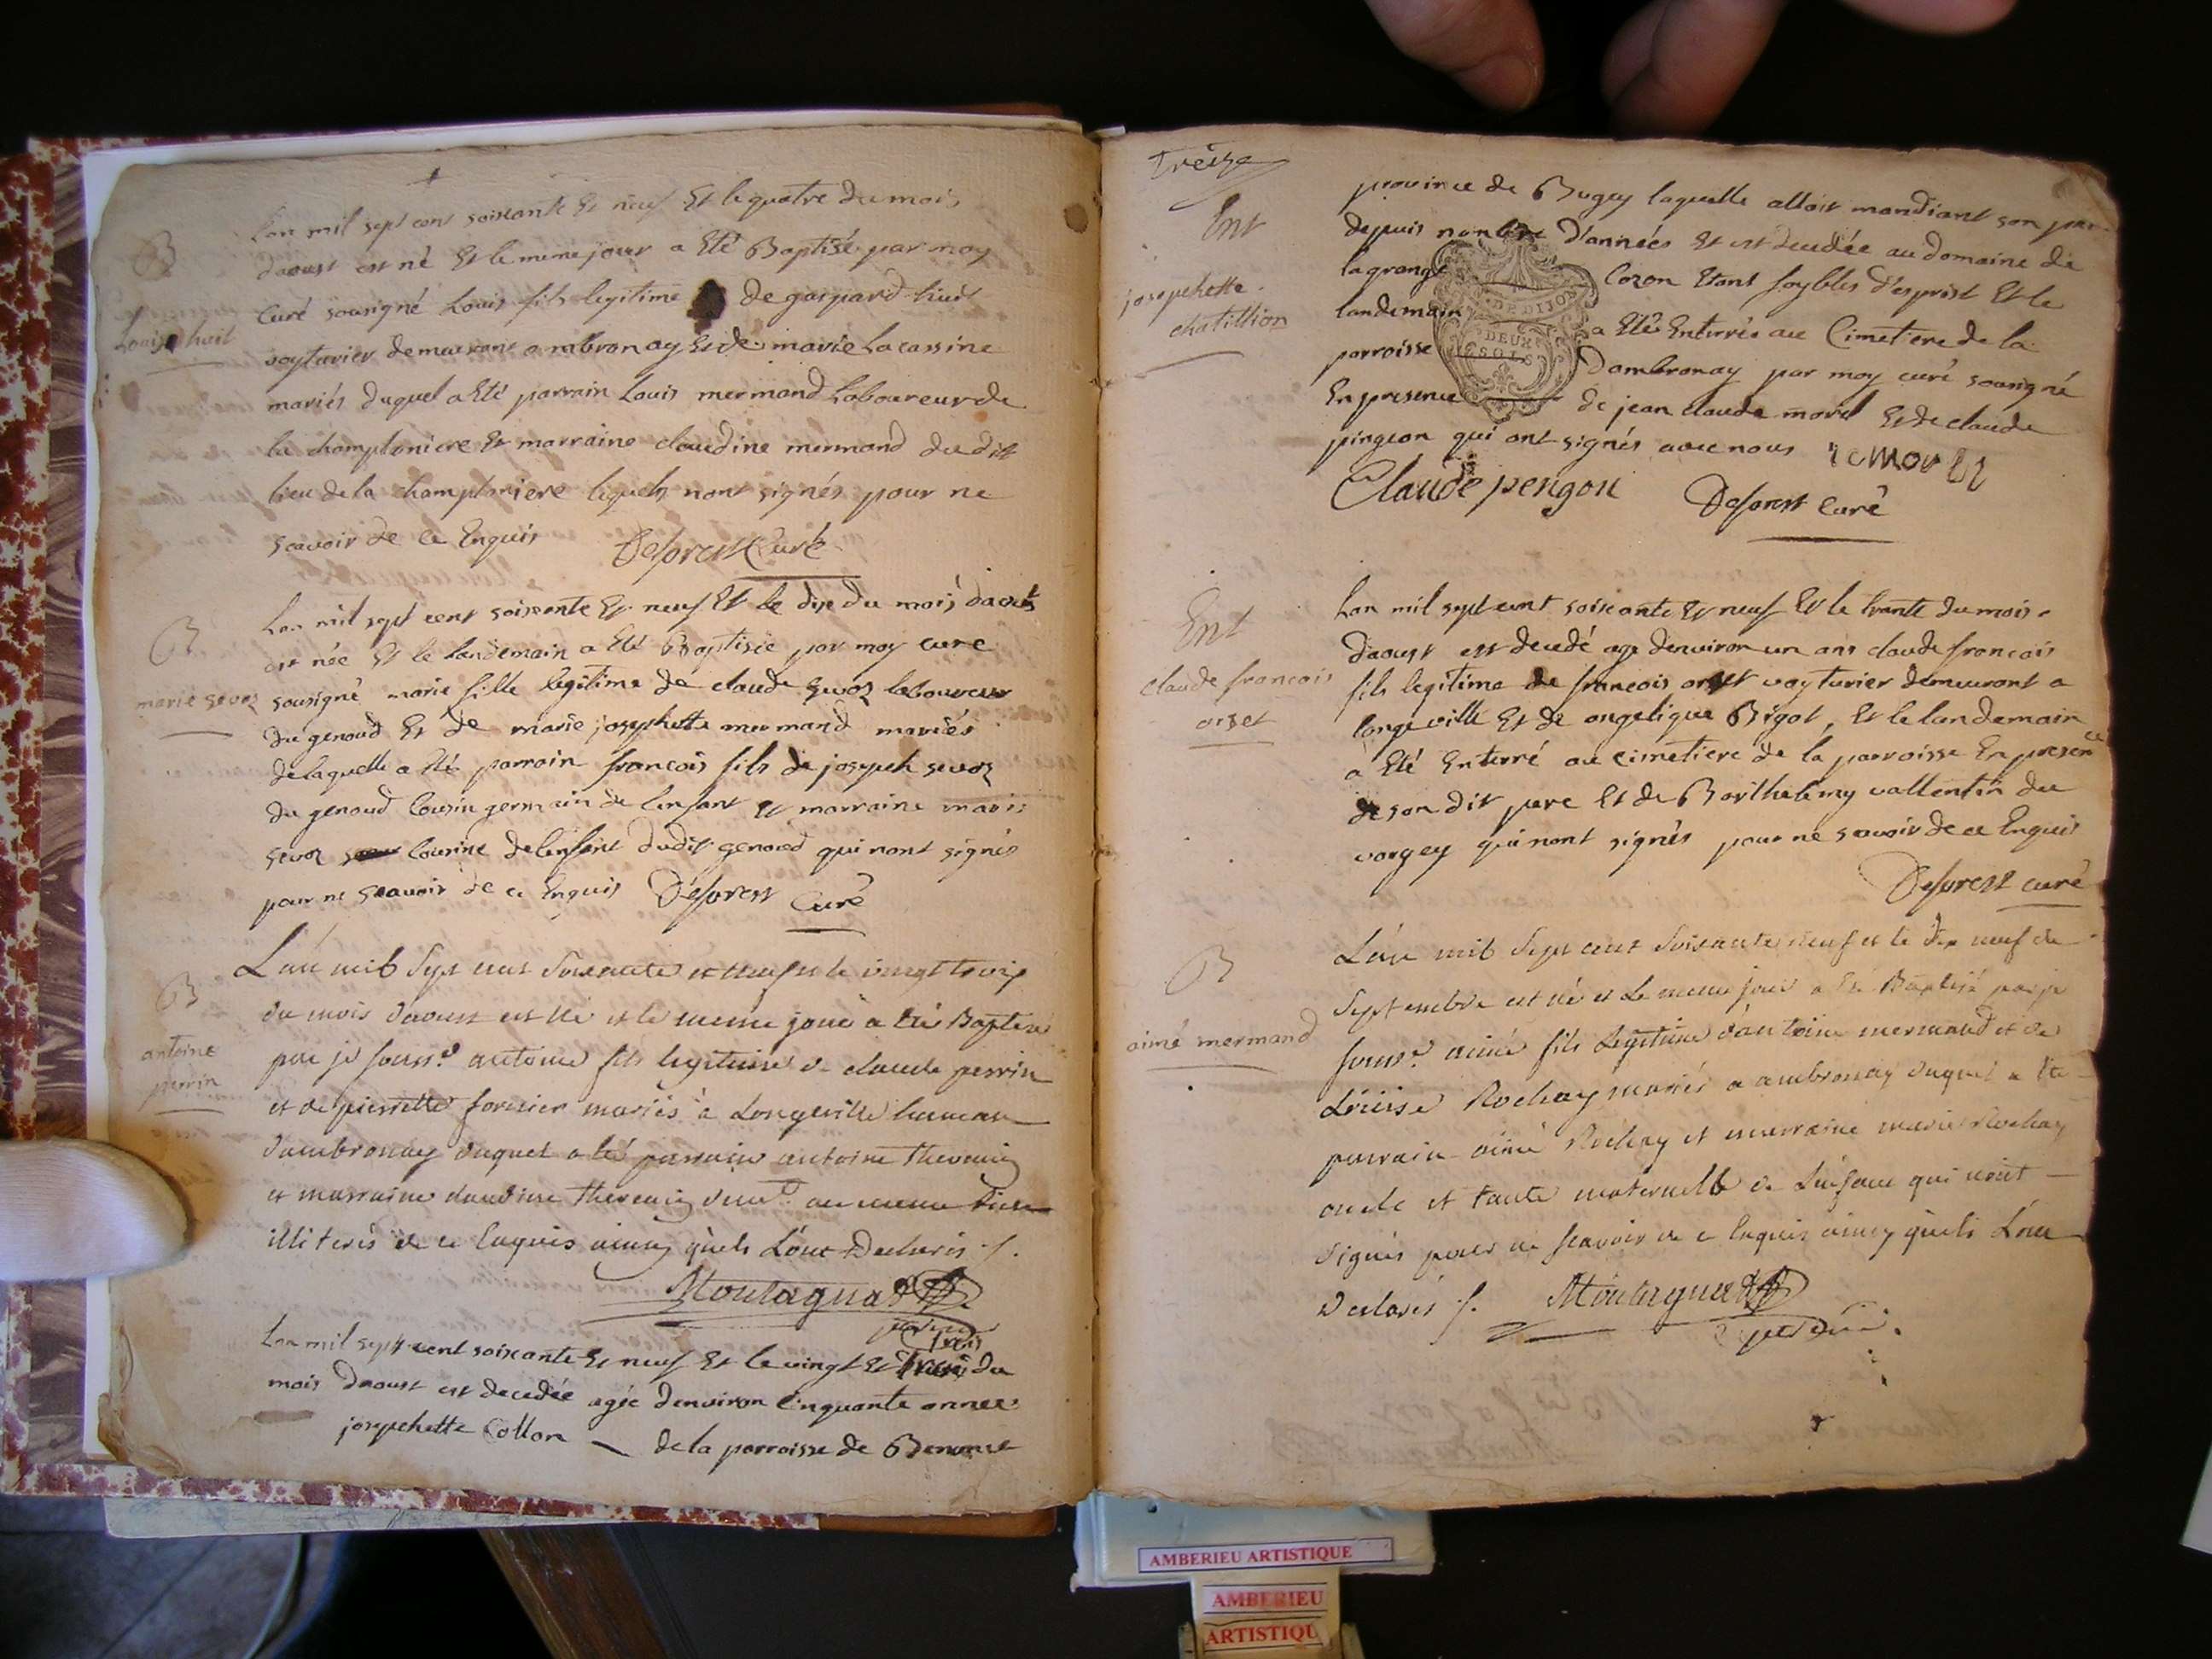 B
Louise huit
Lan mil sept cent soixante Et neuf Et le quatre du mois
daoust est né Et le meme jour a Eté Baptisé par moy
Curé sousigné Louis fils legitime de gaspard huit
voyturier demeurant a ambronay Et de marie Lacassine
mariés duquel a Eté parrain Louis mermand Laboureur de
la championiere Et marraine claudine mermand du dit
lieu de la championiere lequels nont signés pour ne
scavoir de ce Enquis Deforest Curé
B
marie sevoz
Lan mil sept cent soixante Et neuf Et le dix du mois daoust
est née Et le landemain a Eté Baptisée par moy curé
sousigné marie fille legitime de claude sevoz laboureur
du genoud Et de marie josephette mermand mariés
de laquelle a Eté parrain francois fils de joseph sevoz
du genoud Cousin germain de lenfant Et marraine marie
sevoz Cousine de lenfant dudit genoud qui nont signés
pour ne scavoir de ce Enquis Deforest Curé
B
antoine
perrin
L'an mil sept cent soixante et neuf et le vingt trois
du mois daoust est né et le meme jour a été Baptisé
par je souss.é antoine fils legitime de claude perrin
et de pierrette fornier mariés à Longeville hameau
dambronay duquel a été parrain antoine thevenin
et marraine claudine thevenin du meme lieu
illiterés de ce Enquis ainsy qu'els L'ont Declarés /.
Montagnat
Lan mil sept cent soixante Et neuf Et le vingt Et trois du
trois
mois Daoust est decedée agée denviron Cinquante annee
josephette Collon de la parroisse de Benonce
treize
Ent
josephette
chatillion
province de Bugey laquelle alloit mandiant son pain
depuis nombre D'années Et est decedée au domaine de
la grange Cozon Etant foybles d'esprist Et le
landemain a Eté Enterrée au Cimetiere de la
parroisse Dambronay par moy curé sousigné
En presence de jean claude morel Et de claude
pingeon qui ont signés avec nous
DE DIJON
DEUX
SOLS
Claude pengon Deforest Curé
Ent
claude francois
orset
Lan mil sept cent soixante Et neuf Et le trante du mois
daoust est decedé age denviron un ans claude francois
fils legitime de francois orset voyturier demeurant a
longeville Et de angelique Bigot, Et le landemain
a Eté Enterré au cimetiere de la parroisse En presence
de son dit pere Et de Barthelemy vallentin du
vorgey qui nont signés pour ne scavoir de ce Enquis
Deforest curé
B
aimé mermand
L'an mil sept cent soixante neuf et le dix neuf de
Septembre est né et le meme jour a été Baptisé par je
souss.é aimé fils Legitime d'antoine mermand et de
Loüise Rochay mariés a ambronay duquel a été
parrain aimé Rochay et marraine marie Rochay
oncle et tante maternelle de L'enfant qui n'ont
signés pour ne scavoir de ce Enquis ainsy qu'els L'ont
Declarés /. Montagnat
AMBERIEU ARTISTIQUE
AMBERIEU
ARTISTIQU